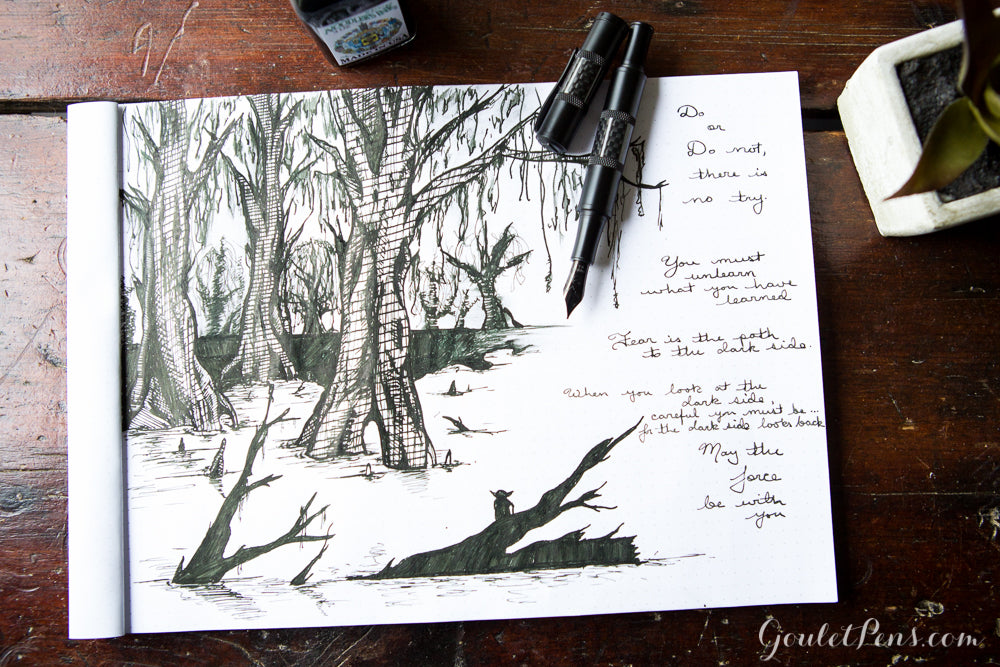 NOODLER'S INK
MADE IN USA
Do
or
Do not,
there is
no try.
You must
unlearn
what you have
learned
Fear is the path
to the dark side.
When you look at the
dark side,
careful you must be...
for the dark side looks back
May the
force
be with
you
GouletPens.com